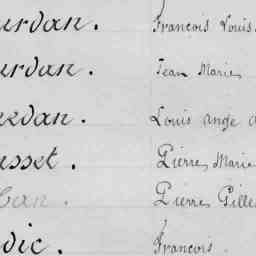 urdan. François Louis
urdan. Jean Marie
urdan. Louis ange
usset. Pierre Marie
Pierre Gilles
dic. François